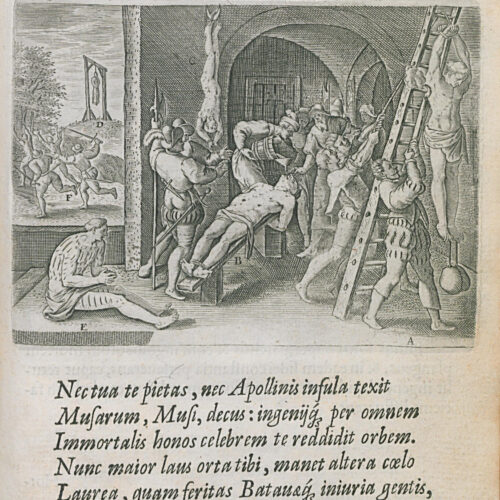 D
F
B
E
A
Nec tua te pietas, nec Apollinis insula texit
Musarum, Musi, decus: ingenijq́; per omnem
Immortalis honos celebrem te reddidit orbem.
Nunc maior laus orta tibi, manet altera cœlo
Laurea, quam feritas Batauæq́; iniuria gentis,